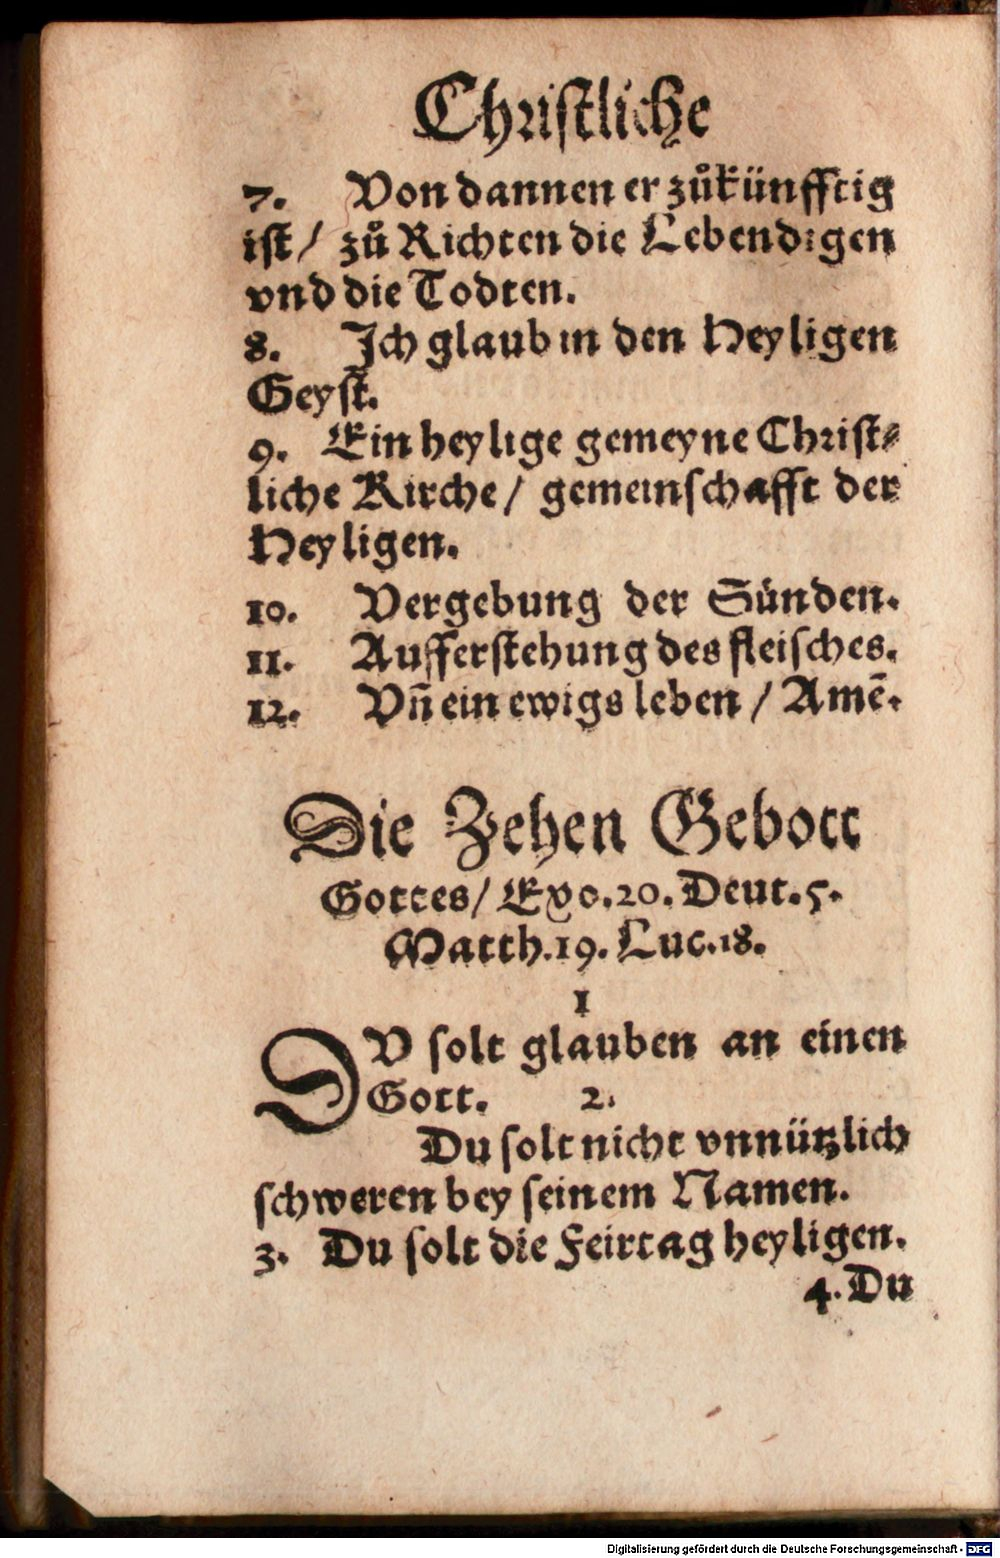 Christliche
7. Von dannen er zuͦkünfftig
ist / zuͦ Richten die Lebendigen
vnd die Todten.
8. Ich glaub in den Heyligen
Geyst.
9. Ein heylige gemeyne Christ⸗
liche Kirche / gemeinschafft der
Heyligen.
10. Vergebung der Sünden.
11. Aufferstehung des fleisches.
12. Vn̄ ein ewigs leben / Amē.
Die Zehen Gebott
Gottes / Exo. 20. Deut. 5.
Matth. 19. Luc. 18.
1
DV solt glauben an einen
Gott. 2.
Du solt nicht vnnützlich
schweren bey seinem Namen.
3. Du solt die Feirtag heyligen.
4. Du
Digitalisierung gefördert durch die Deutsche Forschungsgemeinschaft - DFG